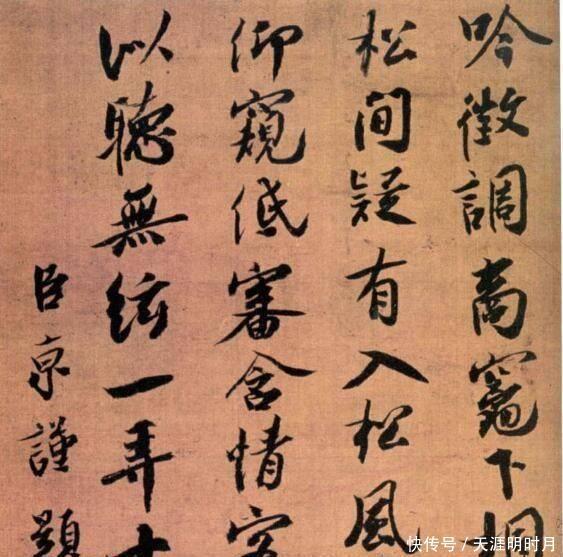 吟徵調商竈下桐
松間疑有入松風
仰窺低審含情客
似聽無絃一弄
臣京謹題
快传号/天涯明时月